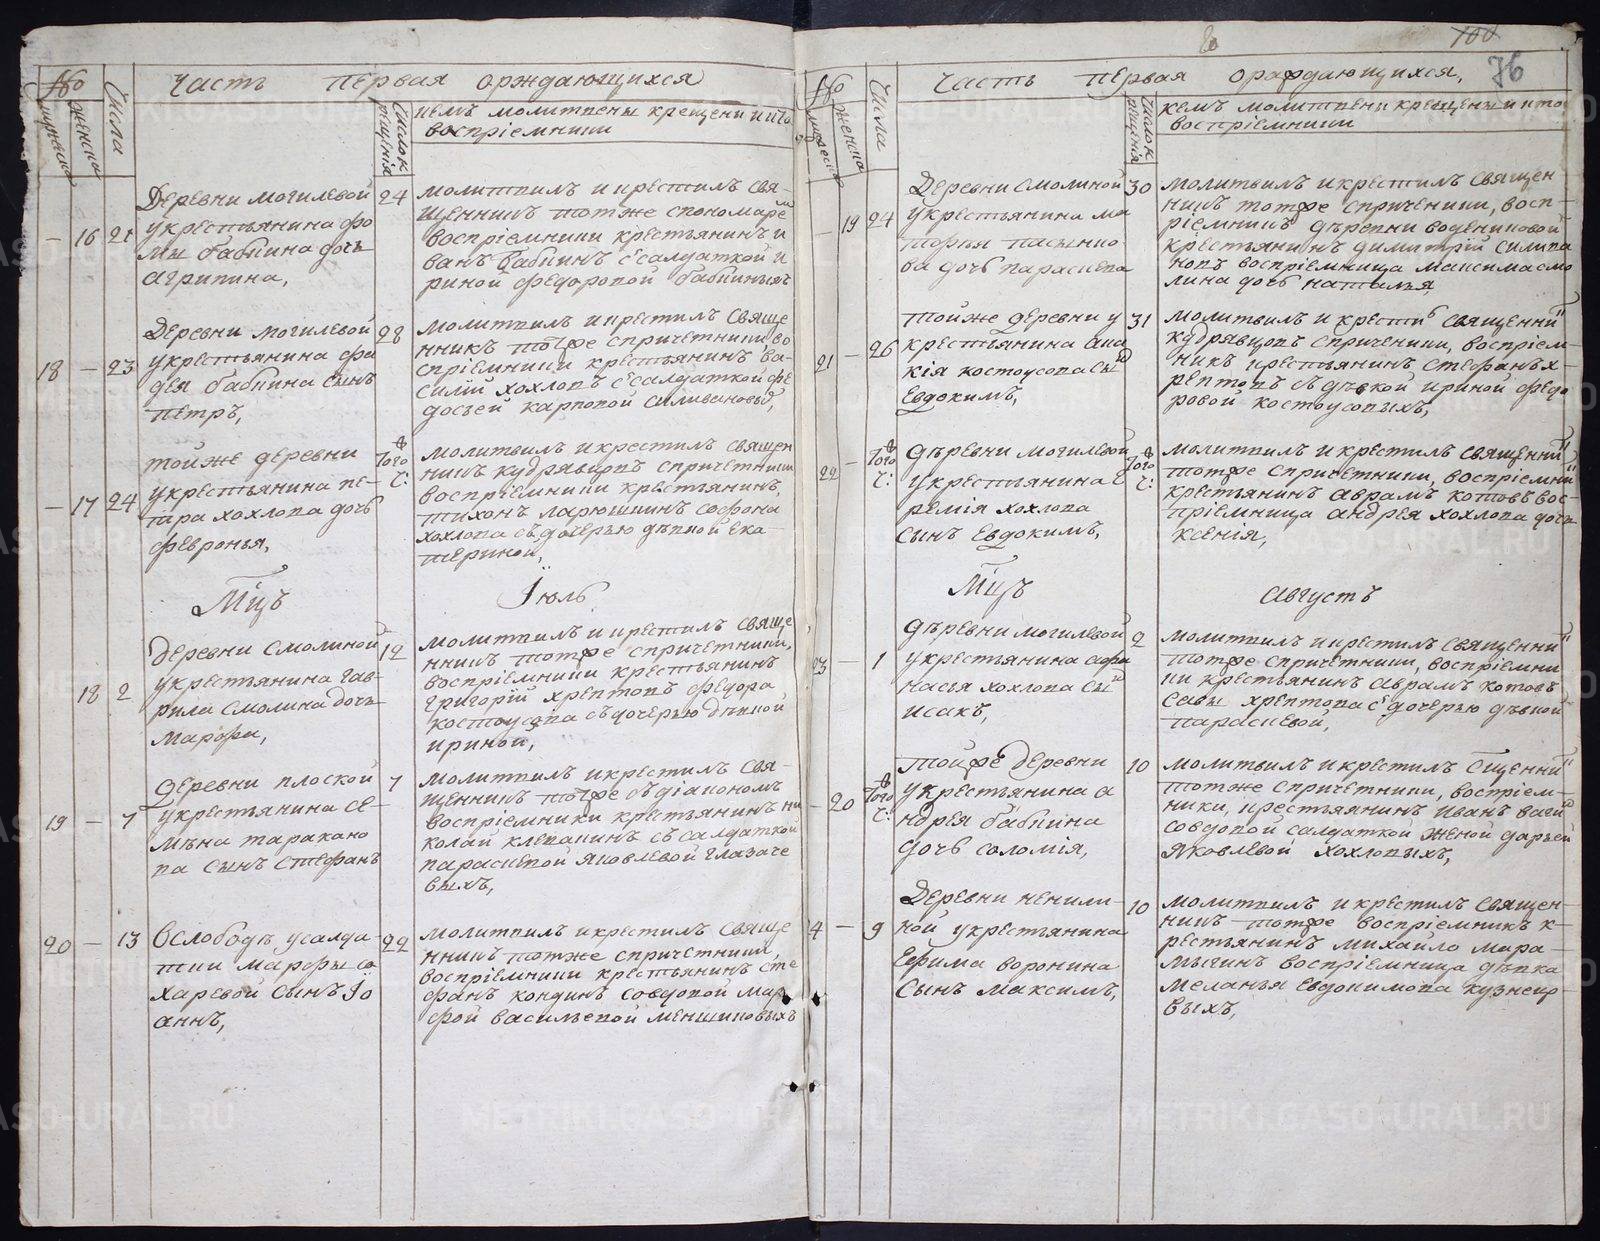 Часть первая орждающихся
№
мужеска
женска
Числа
Число к
рещенія
кемъ молитвены крещени и кто
воспріемники
Деревни могилевой
укрестьянина фо
мы бабкина дочь
агрипина,
— 16 21
24
молитвилъ и крестилъ свя-
щенникъ тотже спономаремъ
воспріемники крестьянинъ и
ванъ бабкинъ с салдаткой и
риной федоровой бабкиныхъ
Деревни могилевой
укрестьянина фа
дея бабкина сынъ
петръ,
18 — 23
28
молитвилъ и крестилъ свяще
нникъ тотже спричетники во
спріемники крестьянинъ ва-
силій хохловъ с салдаткой фе
досьей карповой силивановыхъ
тойже деревни
укрестьянина пе-
тра хохлова дочь
февронья,
— 17 24
Того
ч:
молитвилъ и крестилъ священ
никъ кудрявцовъ спричетники
воспріемники крестьянинъ,
тихонъ ларюшкинъ софона
хохлова съ дочерью девкой ека-
териной,
Мцъ Іюль
деревни смолиной
укрестьянина гав-
рила смолина дочь
марфа,
18 2
12
молитвилъ и крестилъ свяще
нникъ тотже спричетники,
воспріемники крестьянинъ
григорій хрептовъ федора
костоусова съ дочерью девкой
ириной,
деревни плоской
укрестьянина се-
мена таракано
ва сынъ стефанъ
19 — 7
7
молитвилъ и крестилъ свя-
щенникъ тотже съ діакономъ
воспріемники крестьянинъ ни
колай клепанинъ съ салдаткой
парасковой яковлевой глазаче
выхъ,
Вслободе усалда-
тки марфы са
харевой сынъ Іо
аннъ,
20 — 13
22
молитвилъ и крестилъ свяще
нникъ тотже спричетники,
воспріемники крестьянинъ сте
фанъ кондинъ совдовой мар
фой васильевой меншиковыхъ
100
76
Часть первая орафдающихся,
№
женска
Числа
Число к
рещенія
кемъ молитвени крещены и кто
воспріемники
Деревни смолиной
укрестьянина ма
дочь параскева
— 19 24
30
молитвилъ и крестилъ священ
никъ тотже спричетники, восп-
ріемникъ деревни водениковой
крестьянинъ димитрій силива
новъ воспріемница максима смо
лина дочь наталья
тойже деревни у
крестьянина
кія костоусова сынъ
Евдокимъ,
21 — 26
31
молитвилъ и крестилъ священникъ
кудрявцовъ спричетники, воспріем-
никъ крестьянинъ стефанъ х-
рептовъ съ девкой ириной федо
ровой костоусовыхъ,
деревни могилевой
укрестьянина е
ремія хохлова
сынъ Евдокимъ,
22 — Того
ч:
Того
ч:
молитвилъ и крестилъ священникъ
тотже спричетники, воспріемники
крестьянинъ аврамъ котовъ вос-
пріемница андрея хохлова дочь
ксенія,
Мцъ Августъ
деревни могилевой
укрестьянина афа
насья хохлова сынъ
исакъ,
23 — 1
2
молитвилъ и крестилъ священникъ
тотже спричетники, воспріемни
ки крестьянинъ аврамъ котовъ
савы хрептова с дочерью девкой
парасковой,
тойже деревни
укрестьянина а
ндрея бабкина
дочь соломія,
— 20 Того
ч:
10
молитвилъ и крестилъ сщенникъ
тотже спричетники, воспріем-
ники, крестьянинъ иванъ
совдовой салдаткой женой дарьей
яковлевой хохловыхъ,
Деревни
ной укрестьянина
Ефима воронина
сынъ максимъ,
4 — 9
10
молитвилъ и крестилъ священ-
никъ тотже воспріемникъ к-
рестьянинъ михайло мара-
мыгинъ воспріемница девка
меланья евдокимова кузнецо-
выхъ,